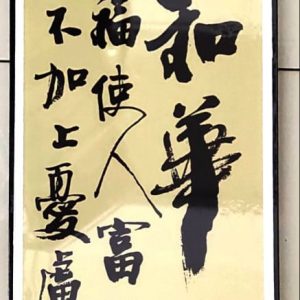 和華
福使人富
不加上憂慮